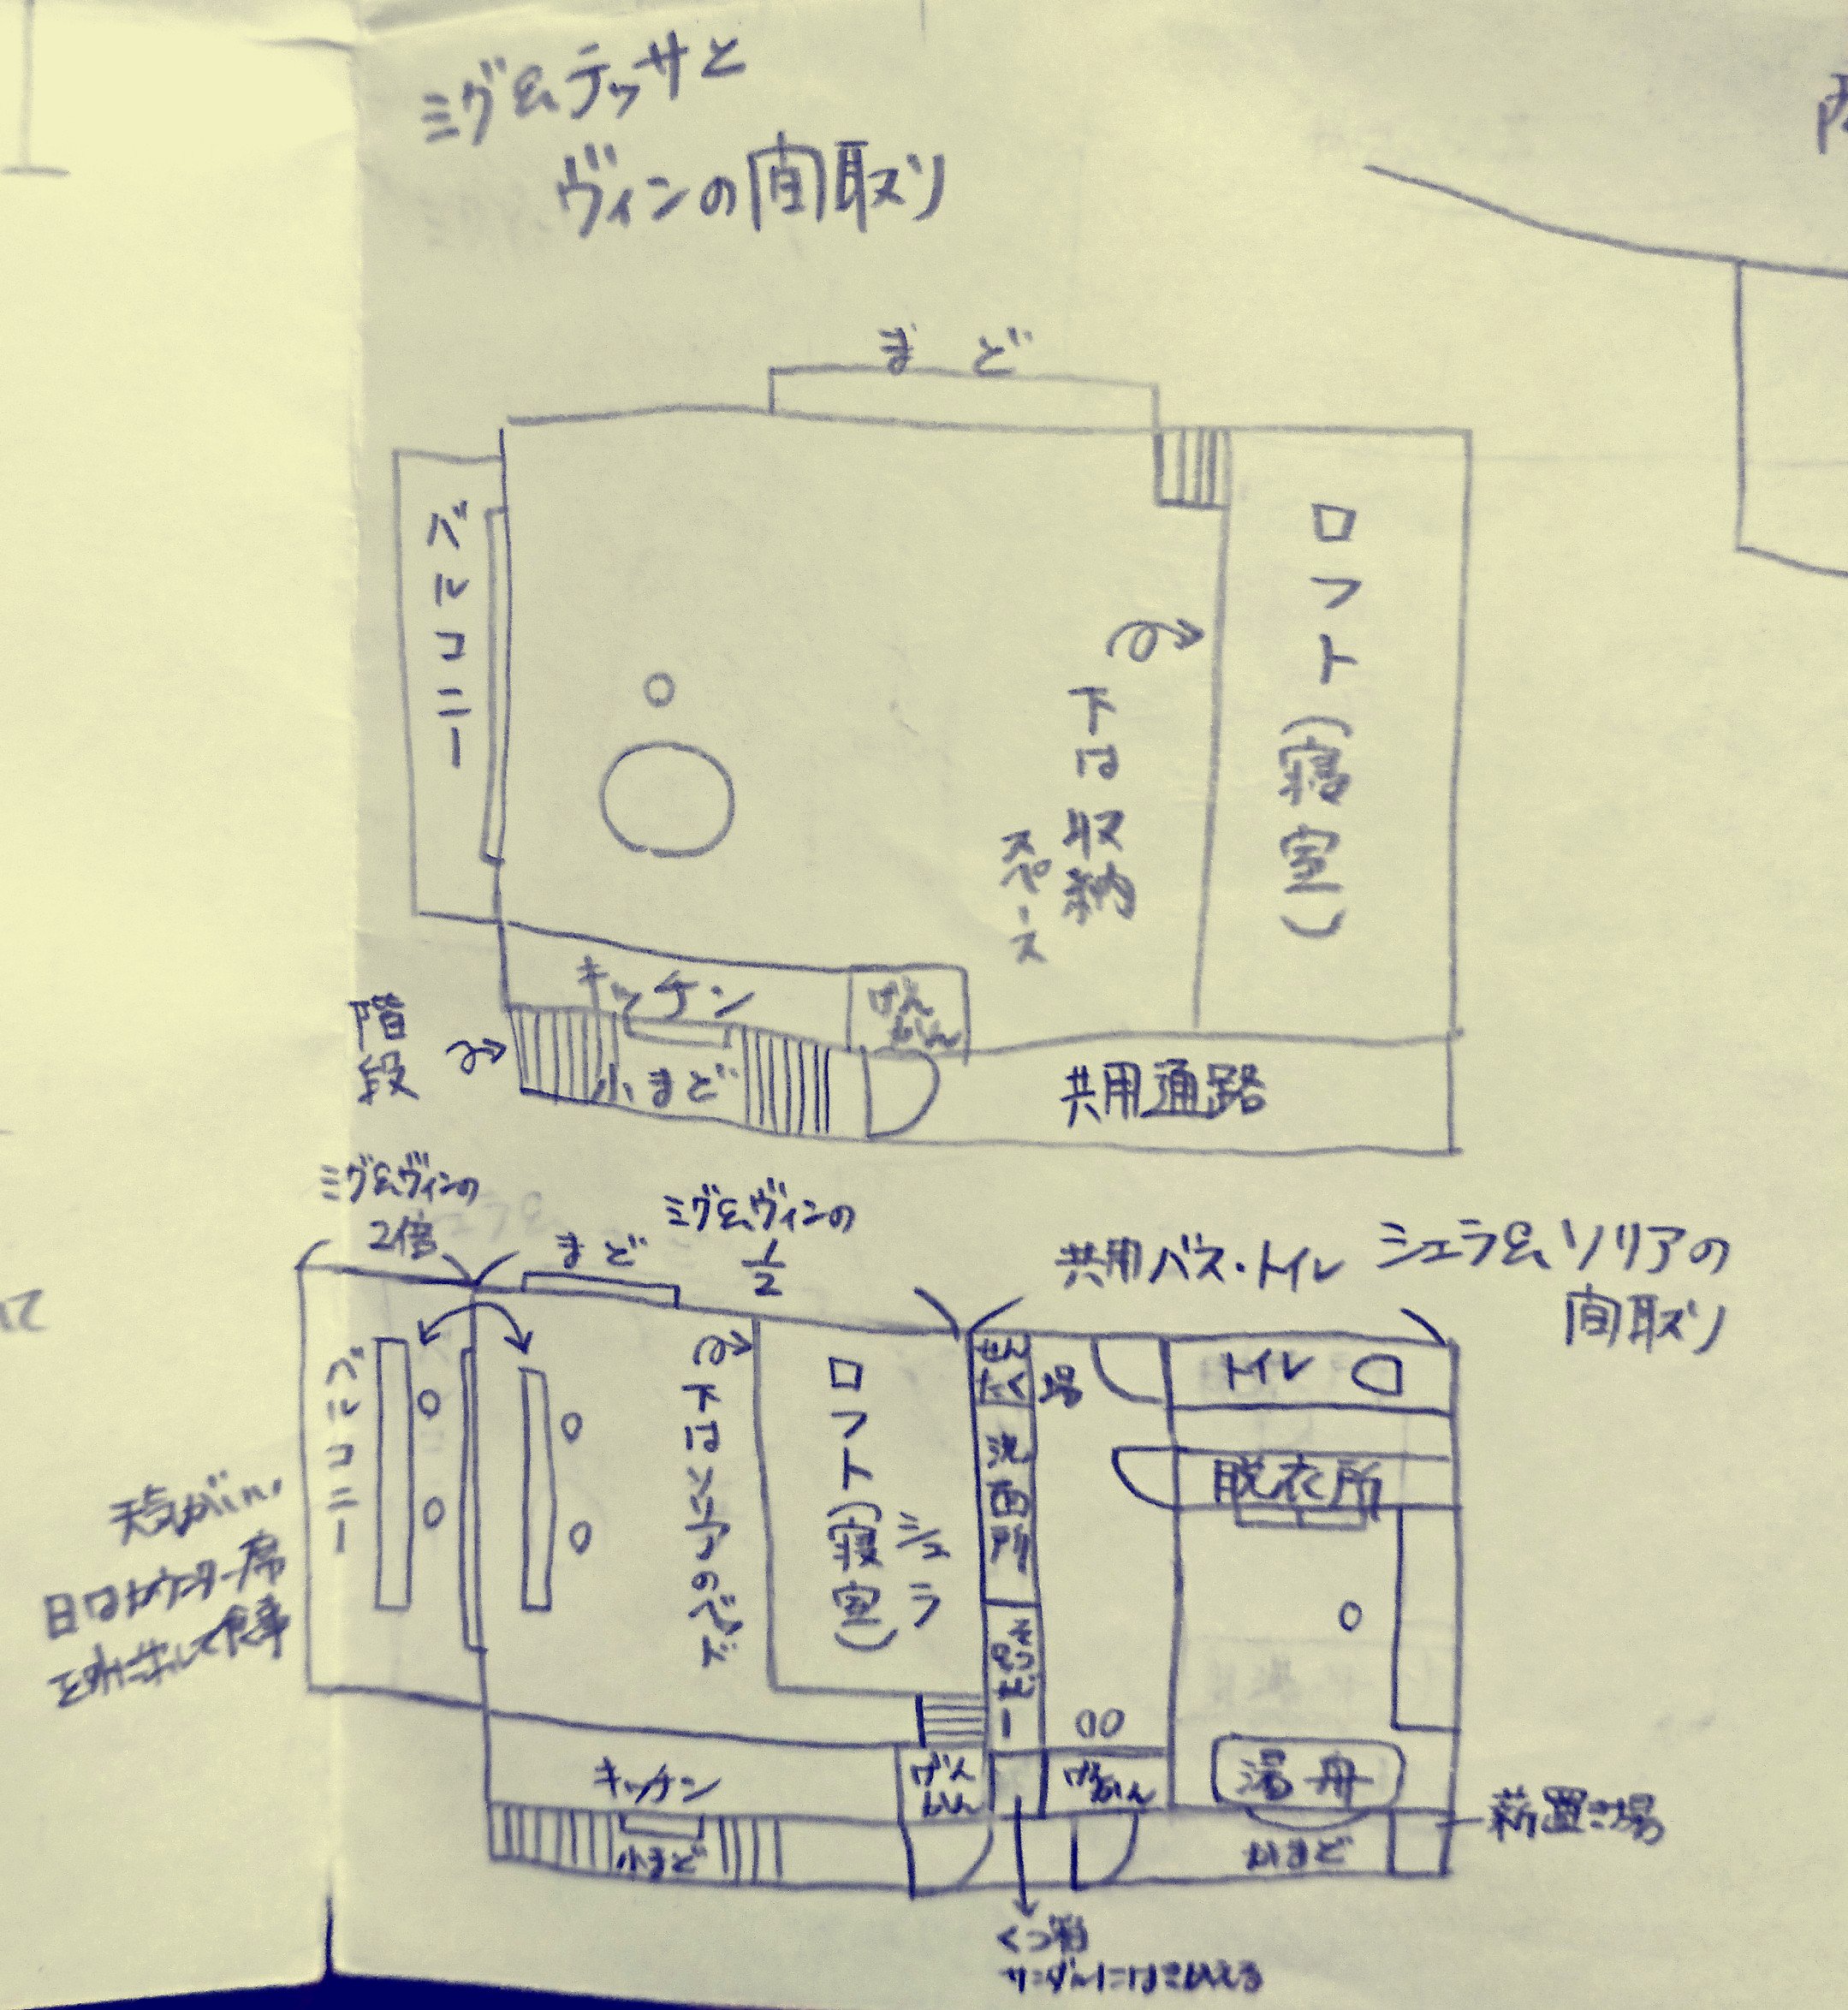 ミグ&テッサと
ヴィンの間取り
まど
バルコニー
ロフト(寝室)
下は収納
スペース
キッチン
げん
かん
階
段
小まど
共用通路
ミグ&ヴィンの
2倍
まど
ミグ&ヴィンの
1/2
共用バス・トイレ
シェラ&ソリアの
間取り
バルコニー
下はソリアのベッド
ロフト(寝室)
シェラ
せん
たく
場
洗面所
トイレ
脱衣所
天気がいい
日はカウンター席
を外に出して食事
キッチン
げん
かん
げんかん
湯舟
薪置き場
小まど
かまど
くつ箱
サンダルにはきかえる